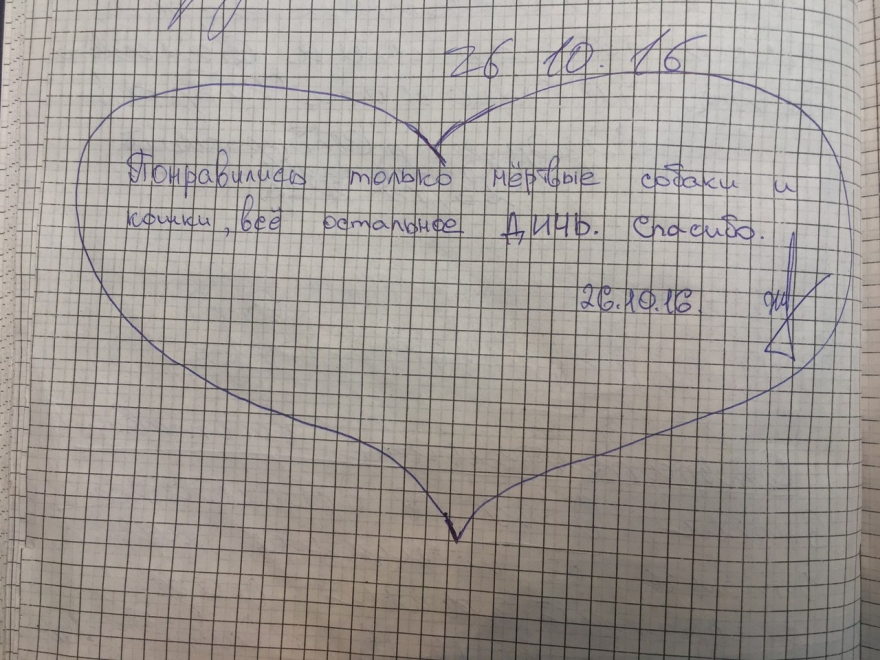 26 10. 16
Понравились только мёртвые собаки и
кошки, всё остальное ДИЧЬ. Спасибо.
26.10.16